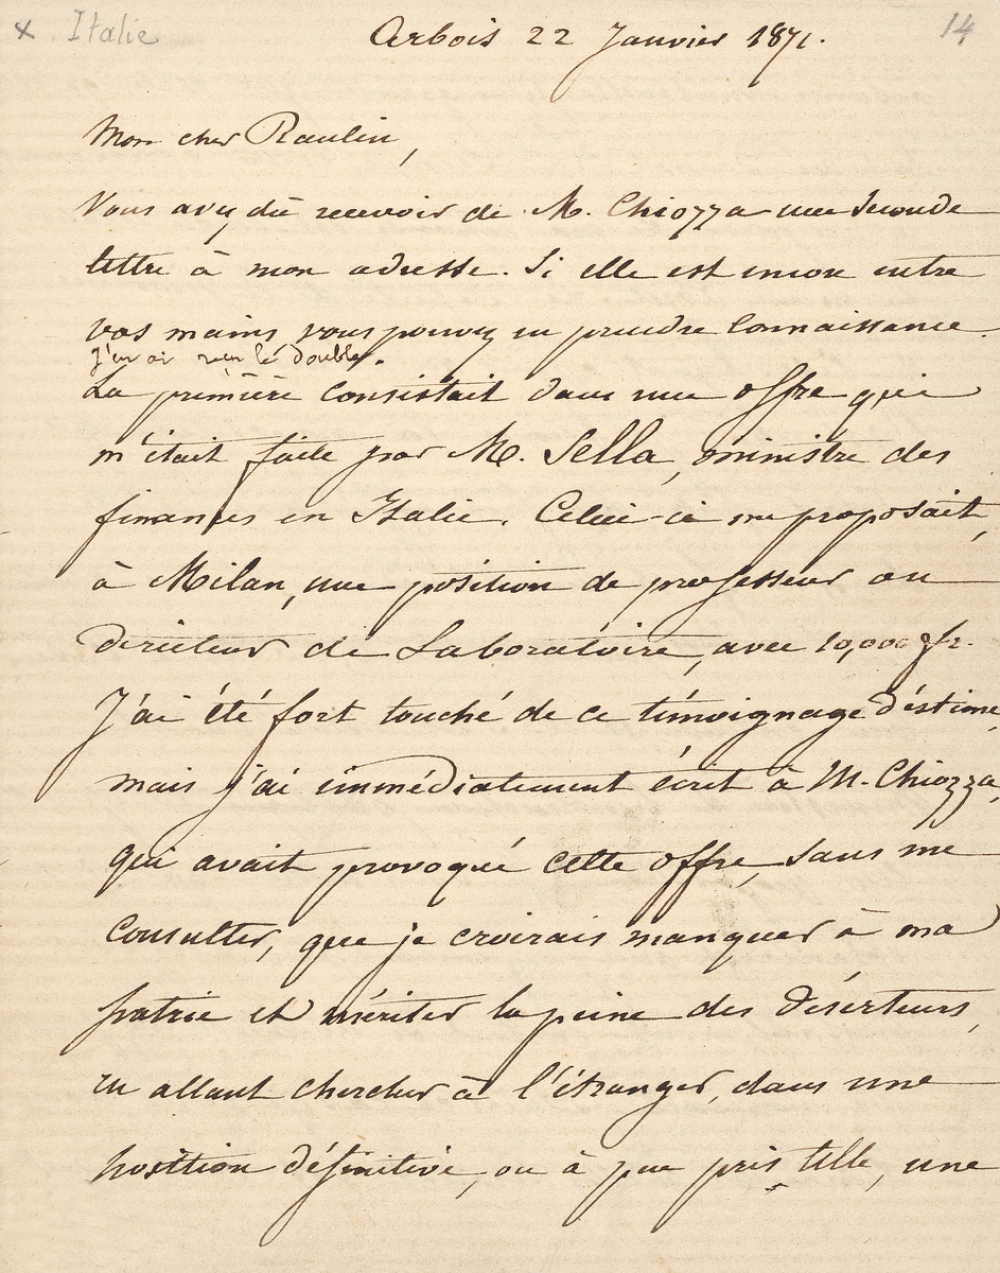 x Italie
Arbois 22 Janvier 1871.
14
Mon cher Raulin,
Vous avez dû recevoir de M. Chiozza une seconde
lettre à mon adresse. Si elle est encore entre
vos mains vous pouvez en prendre connaissance.
J'en ai reçu le double.
La première consistait dans une offre qui
m'était faite par M. Sella, ministre des
finances en Italie. Celui-ci me proposait,
à Milan, une position de professeur ou
directeur de Laboratoire, avec 10,000 fr.
J'ai été fort touché de ce témoignage d'estime,
mais j'ai immédiatement écrit à M. Chiozza,
qui avait provoqué cette offre, sans me
consulter, que je croirais manquer à ma
patrie et mériter la peine des déserteurs,
en allant chercher à l'étranger, dans une
position définitive, ou à peu près telle, une